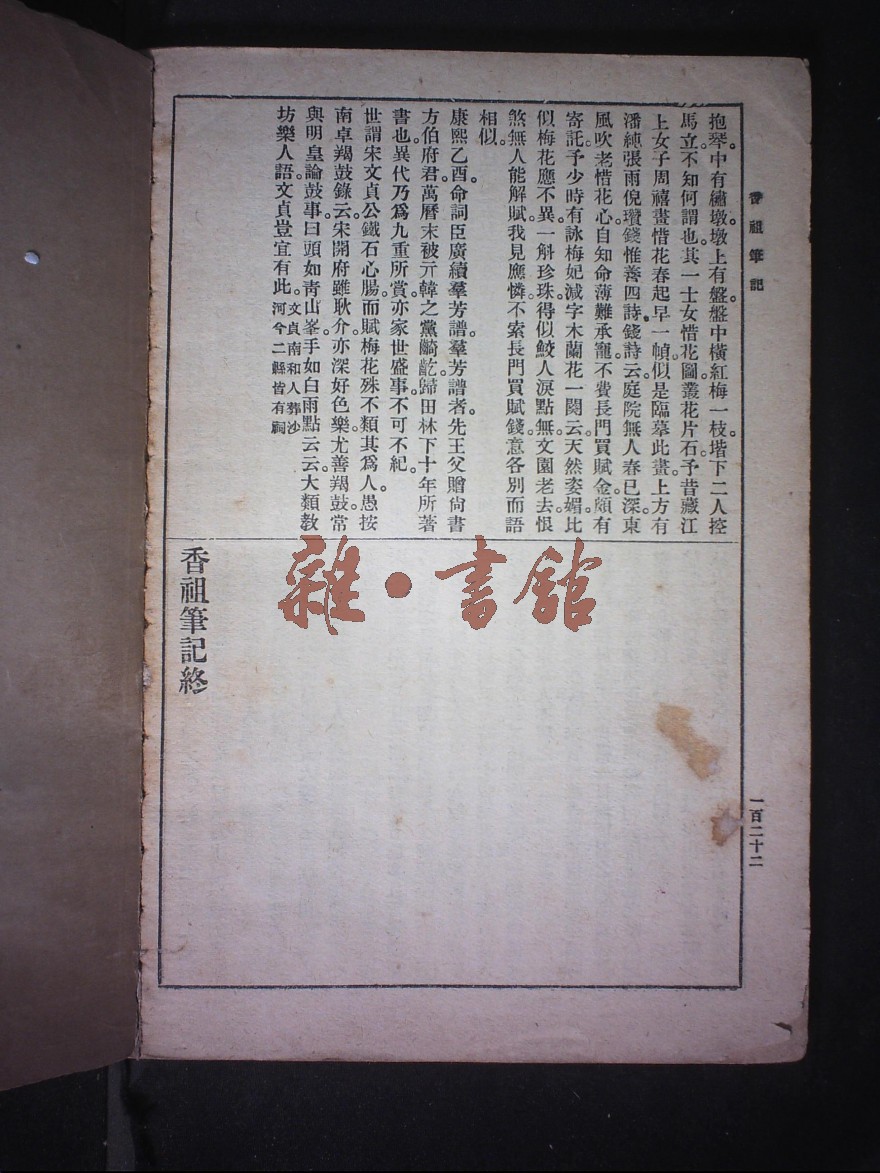 香祖筆記
抱琴。中有繡墩。墩上有盤。盤中橫紅梅一枝。堦下二人控
馬立。不知何謂也。其一士女惜花圖。叢花片石。予昔藏江
上女子周禧畫惜花春起早一幀。似是臨摹此畫。上方有
潘純張雨倪瓚錢惟善四詩。錢詩云。庭院無人春已深。東
風吹老惜花心。自知命薄難承寵。不費長門買賦金。頗有
寄託。予少時有詠梅妃減字木蘭花一闋云。天然姿媚。比
似梅花應不異。一斛珍珠。得似鮫人淚點無。文園老去。恨
煞無人能解賦。我見應憐。不索長門買賦錢。意各別而語
相似。
康熙乙酉。命詞臣廣續羣芳譜。羣芳譜者。先王父贈尚書
方伯府君。萬曆末被亓韓之黨齮齕。歸田林下十年所著
書也。異代乃爲九重所賞。亦家世盛事。不可不紀。
世謂宋文貞公鐵石心腸。而賦梅花殊不類其爲人。愚按
南卓羯鼓錄云。宋開府雖耿介。亦深好色樂。尤善羯鼓。常
與明皇論鼓事曰。頭如青山峯。手如白雨點云云。大類教
坊樂人語。文貞豈宜有此。文貞南和人葬沙
河兮二縣皆有祠
香祖筆記終
一百二十二
雜·書館